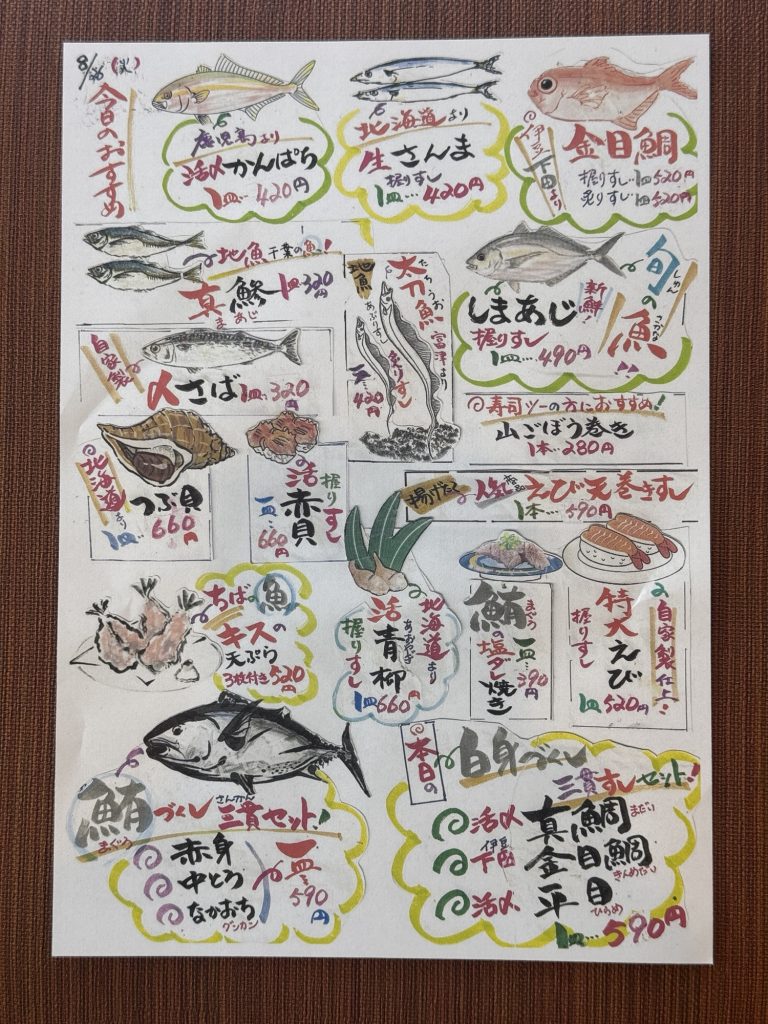 8/26(火)
今日のおすすめ
鹿児島より
活〆かんぱち
1皿…420円
北海道より
生さんま
握りすし
1皿…420円
伊豆下田より
金目鯛
握りすし…1皿520円
炙りすし 1皿520円
地魚千葉の魚っ!
真鯵 1皿320円
まあじ
地魚
太刀魚
たちうお
富津より
あぶりすし
炙りすし
一皿…420円
旬の魚
しゅん
さかな
新鮮!
しまあじ
握りすし
1皿…490円
自家製
〆さば 1皿…320円
寿司ツーの方におすすめ!
山ごぼう巻き
1本…280円
北海道より
つぶ貝
1皿…660円
握りすし
活赤貝
一皿…660円
揚げたて
人気
えび天巻きすし
1本…590円
ちばの魚
キスの
天ぷら
3枚付き520円
北海道より
活青柳
あおやぎ
握りすし
1皿660円
鮪の塩ダレ焼き
まぐろ
一皿…390円
自家製仕上
特大えび
握りすし
1皿520円
鮪づくし三貫セット!
まぐろ
さんかん
赤身
中とろ
なかおち
グンカン
一皿…590円
本日の
白身づくし
三貫すしセット!
活〆 真鯛
まだい
伊豆
下田 金目鯛
きんめだい
活〆 平目
ひらめ
1皿…590円